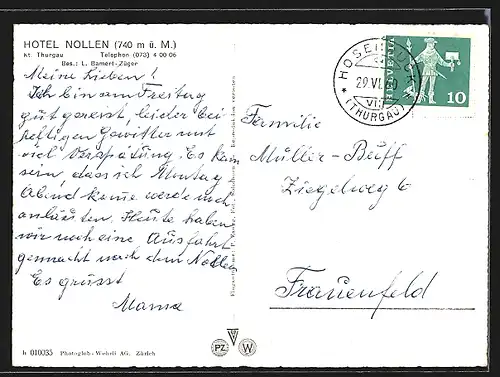 HOTEL NOLLEN (740 m ü. M.)
Kt. Thurgau Telephon (073) 4 00 06
Bes.: L. Bamert-Züger
Meine Lieben!
Ich bin am Freitag
gut gereist, leider bei
heftigen Gewitter mit
viel Verspätung. Es kann
sein, dass ich Montag
Abend komme werde euch
anläuten. Heute haben
wir noch eine Ausfahrt
gemacht nach dem Nollen
Es grüsst
Mama
h 010035 Photoglob-Wehrli AG, Zürich
PZ
W
HOSENRUCK
29.VI.
(THURGAU)
HELVETIA
10
Familie
Müller-Buff
Ziegelweg 6
Frauenfeld